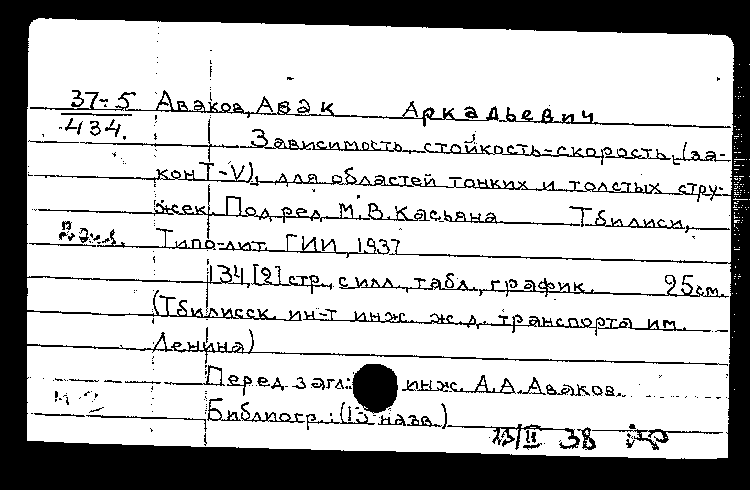 37-5 Аваков, Авак Аркадьевич
434.
Зависимость стойкость-скорость, (за-
кон T-V), для областей тонких и толстых стру-
жек. Под ред. М.В. Касьяна Тбилиси,
2 экз. Типо-лит. ГИИ, 1937
134, [2] стр., с илл., табл., график. 25 см.
(Тбилисск. ин-т инж. ж.д. транспорта им.
Ленина)
Перед загл.: инж. А.А. Аваков.
Библиогр.: (13 назв.)
М-2
13/II 38